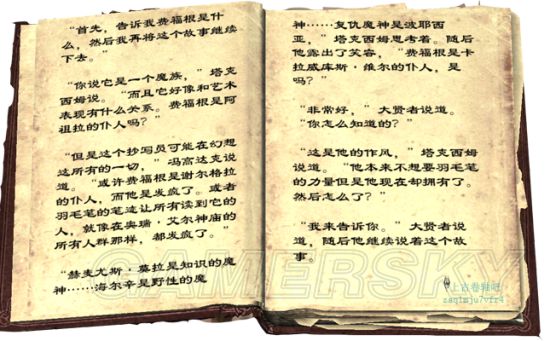 “首先，告诉我费福根是什
么，然后我再将这个故事继续
下去。”
“你说它是一个魔族，”塔克
西姆说。“而且它好像和艺术
表现有什么关系。费福根是阿
祖拉的仆人吗？”
“但是这个抄写员可能在幻想
这所有的一切，”冯高达克说
道。“或许费福根是谢尔格拉
的仆人，而他是发疯了。或者
羽毛笔的笔迹让所有读到它的
人，就像在奥瑞·艾尔神庙的
所有人群那样，都发疯了。”
“赫麦尤斯·莫拉是知识的魔
神……海尔辛是野性的魔
神……复仇魔神是波耶西
亚，”塔克西姆思考着。随后
他露出了笑容，“费福根是卡
拉威库斯·维尔的仆人，是
吗？”
“非常好，”大贤者说道。
“你怎么知道的？”
“这是他的作风，”塔克西姆
说道。“他本来不想要羽毛笔
的力量但是他现在却拥有了。
然后怎么了？”
“我来告诉你。”大贤者说
道，随后他继续说着这个故
事。
GAMERSKY
上古卷轴吧
zaq1mju7vfr4